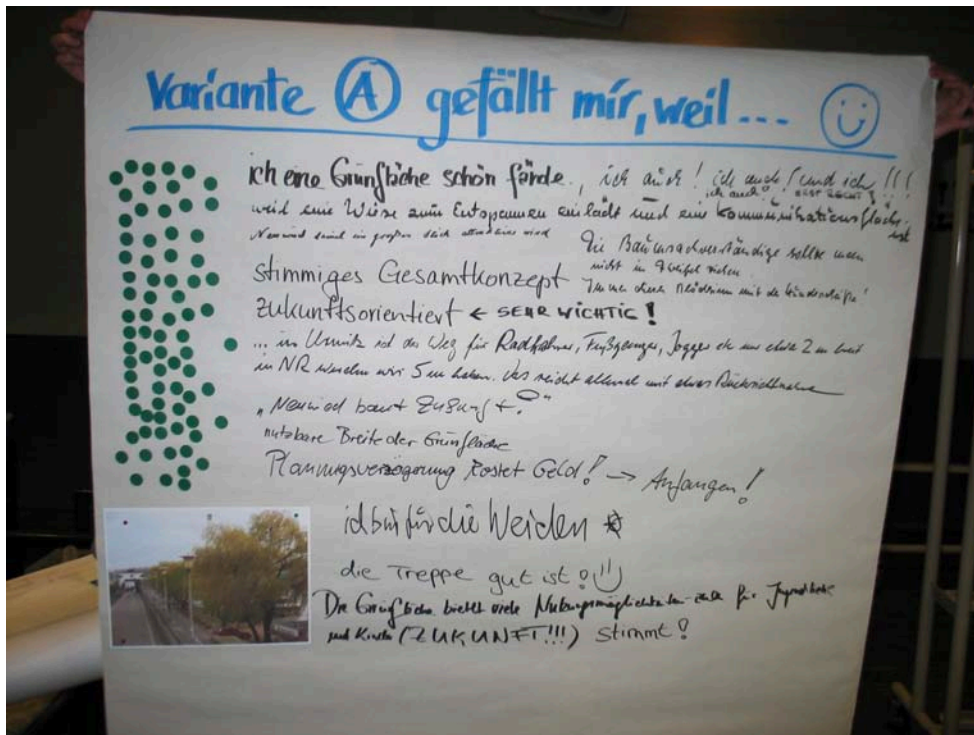 Variante A gefällt mir, weil...
ich eine Grünfläche schön fände, ich auch! ich auch! und ich!!!
ich auch!
weil eine Wiese zum Entspannen einlädt und eine Kommunikationsfläche ist
Neuwied damit ein großes Stück attraktiver wird
Die Baumsachverständige sollte man
nicht in Zweifel ziehen
stimmiges Gesamtkonzept
Immer diese
mit
zukunftsorientiert ← SEHR WICHTIG!
... in Urmitz ist der Weg für Radfahrer, Fußgänger, Jogger etc nur etwa 2 m breit
in NR werden wir 5 m haben. Das reicht allemal mit etwas Rücksichtnahme
„Neuwied baut Zukunft“
nutzbare Breite der Grünfläche
Planungsverzögerung kostet Geld! → Anfangen!
ich bin für die Weiden
die Treppe gut ist!
Die Grünfläche bietet viele Nutzungsmöglichkeiten für Jugendliche
und Kinder (ZUKUNFT!!!) stimmt!